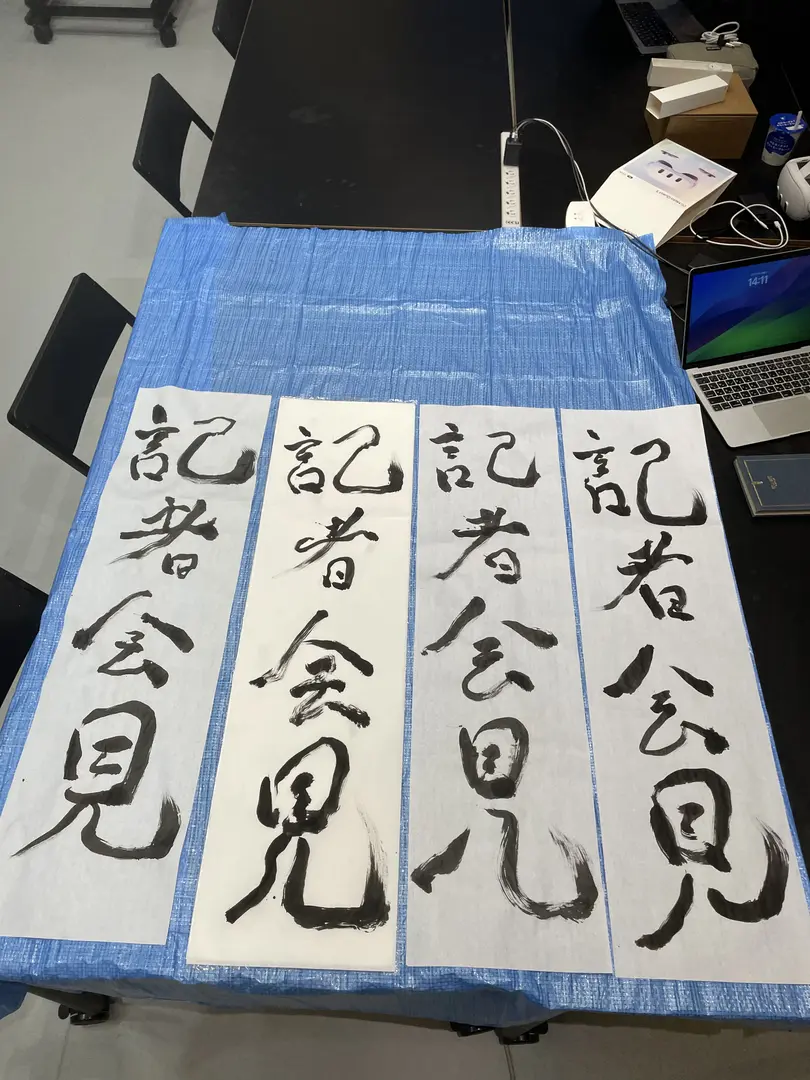 記者会見
記者会見
記者会見
記者会見
14:11